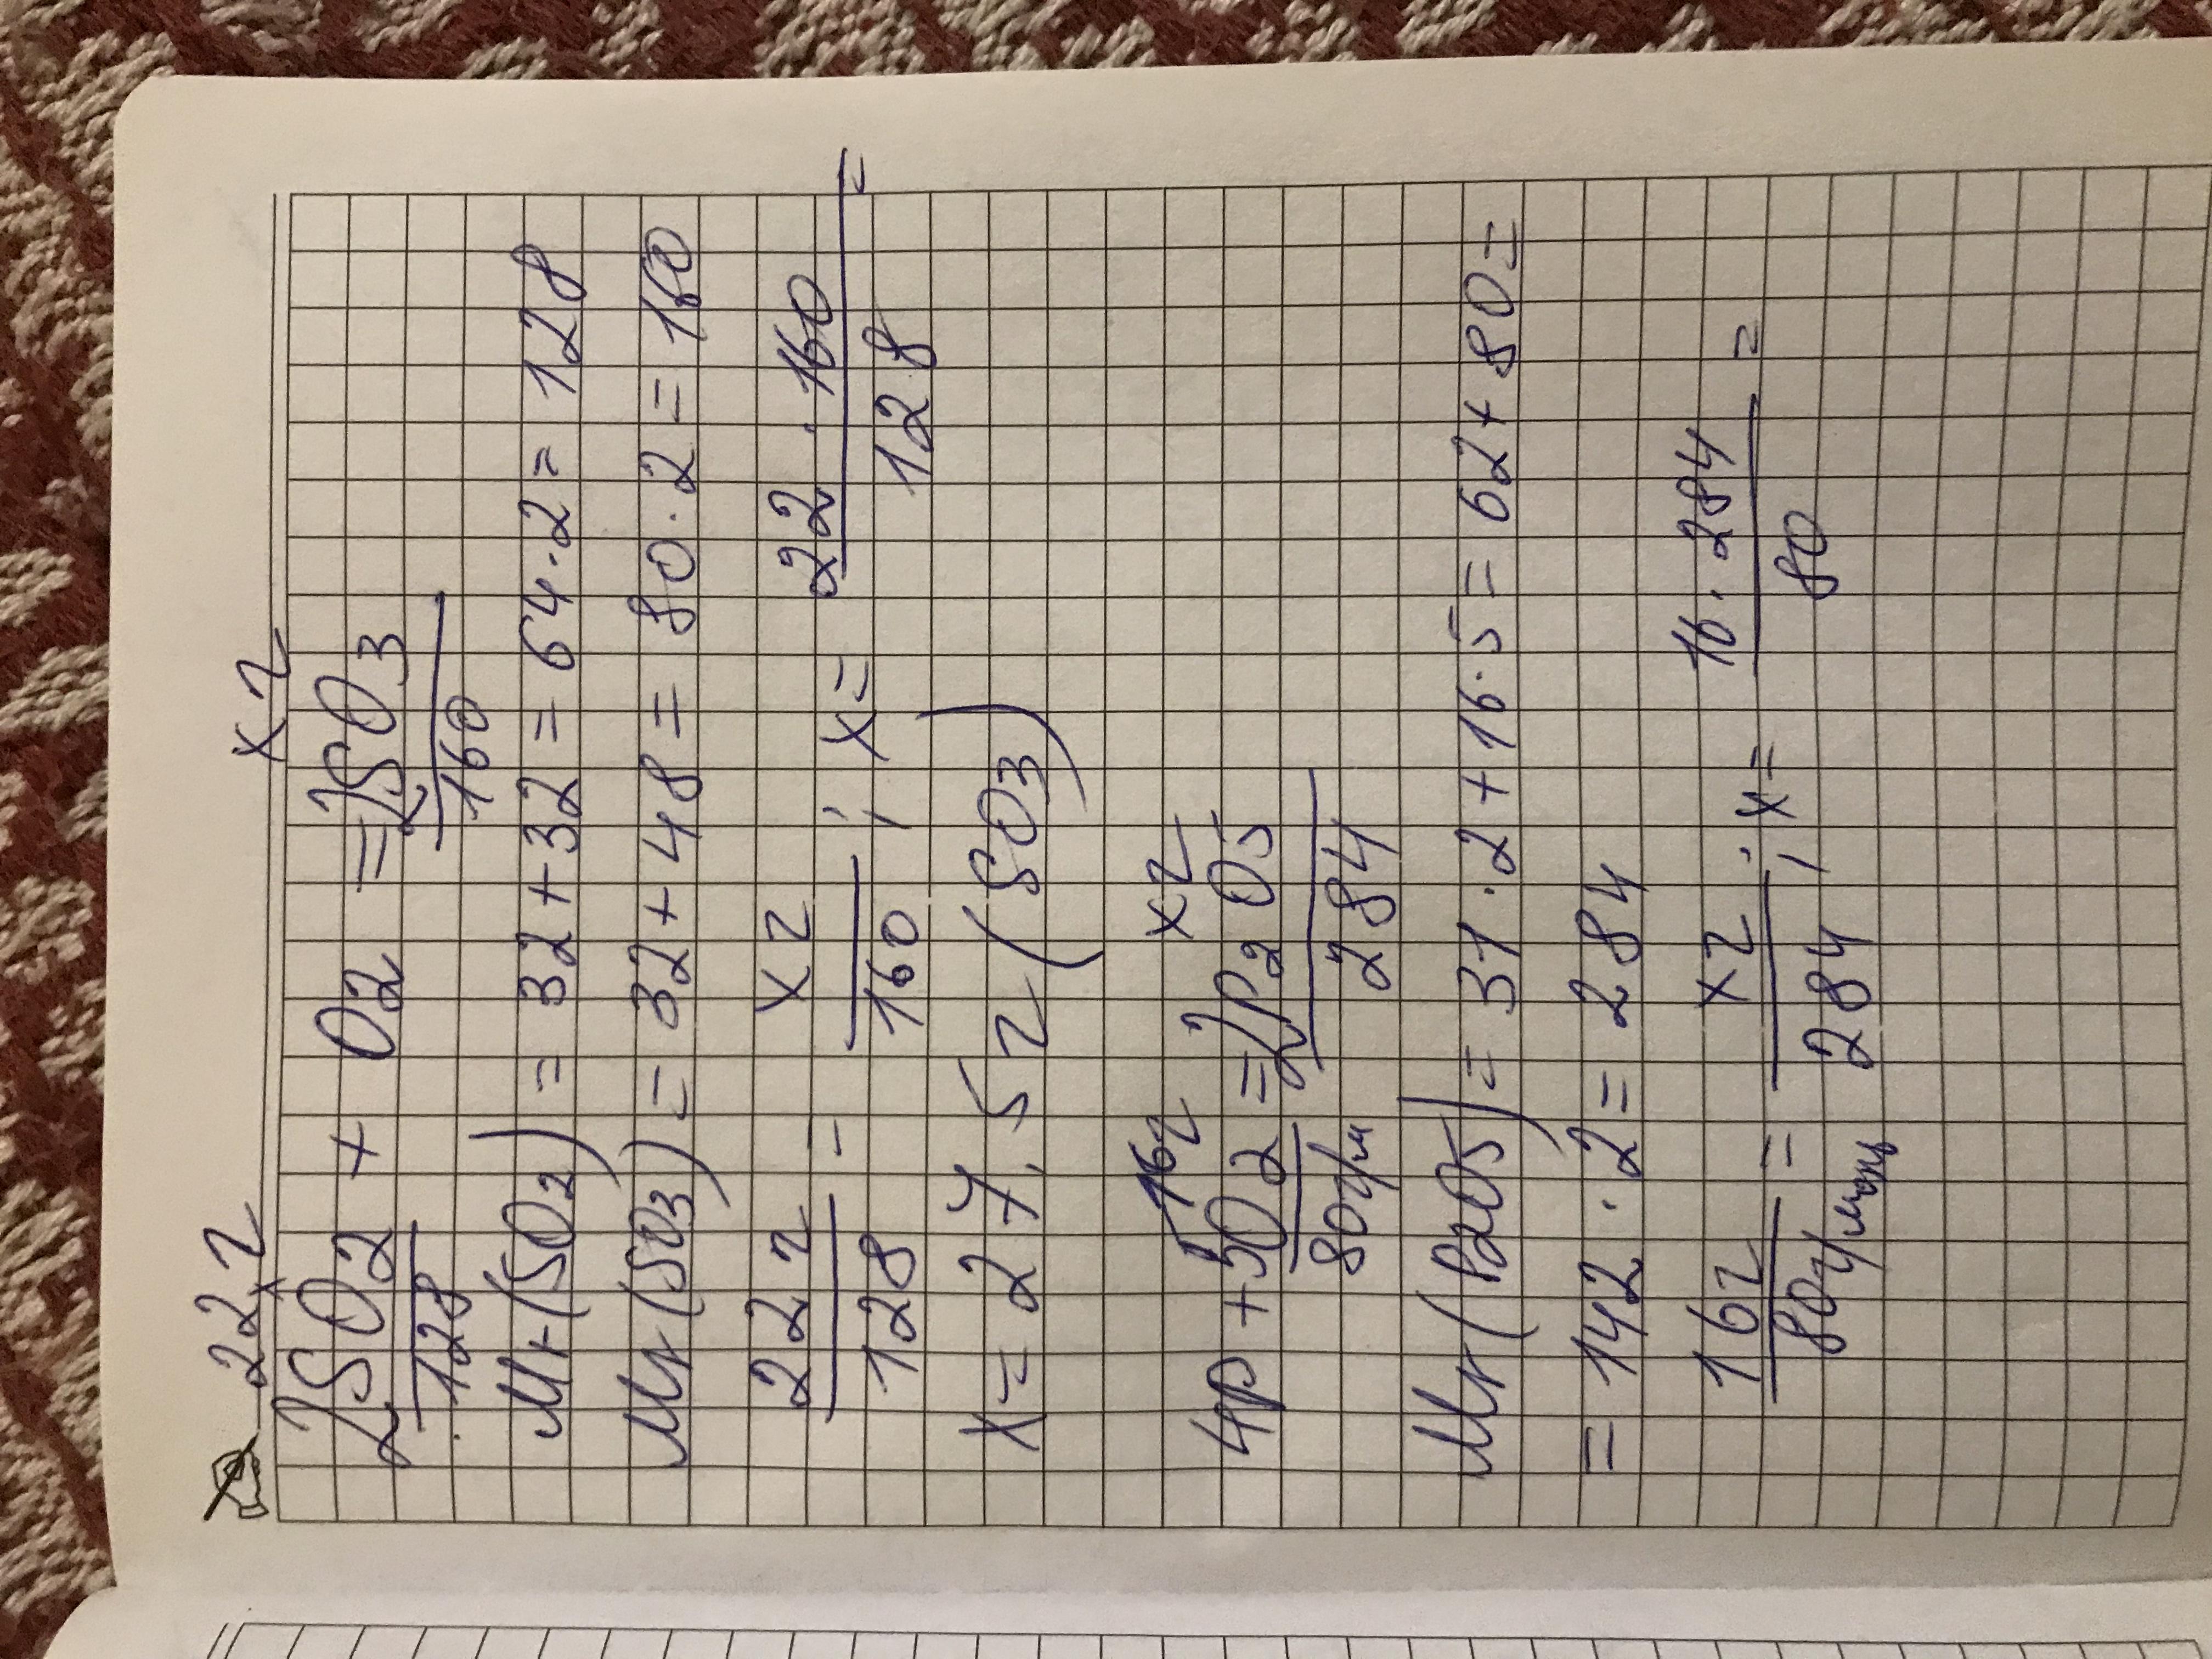 22г хг
2SO2 + O2 = 2SO3
128 160
Mr(SO2) = 32+32 = 64·2 = 128
Mr(SO3) = 32+48 = 80·2 = 160
22г/128 = хг/160 ; х = 22·160/128 =
х = 27,5г (SO3)
16г хг
4P + 5O2 = 2P2O5
80г/м 284
Mr(P2O5) = 31·2+16·5 = 62+80 =
= 142·2 = 284
16г/80г/моль = хг/284 ; х = 16·284/80 =